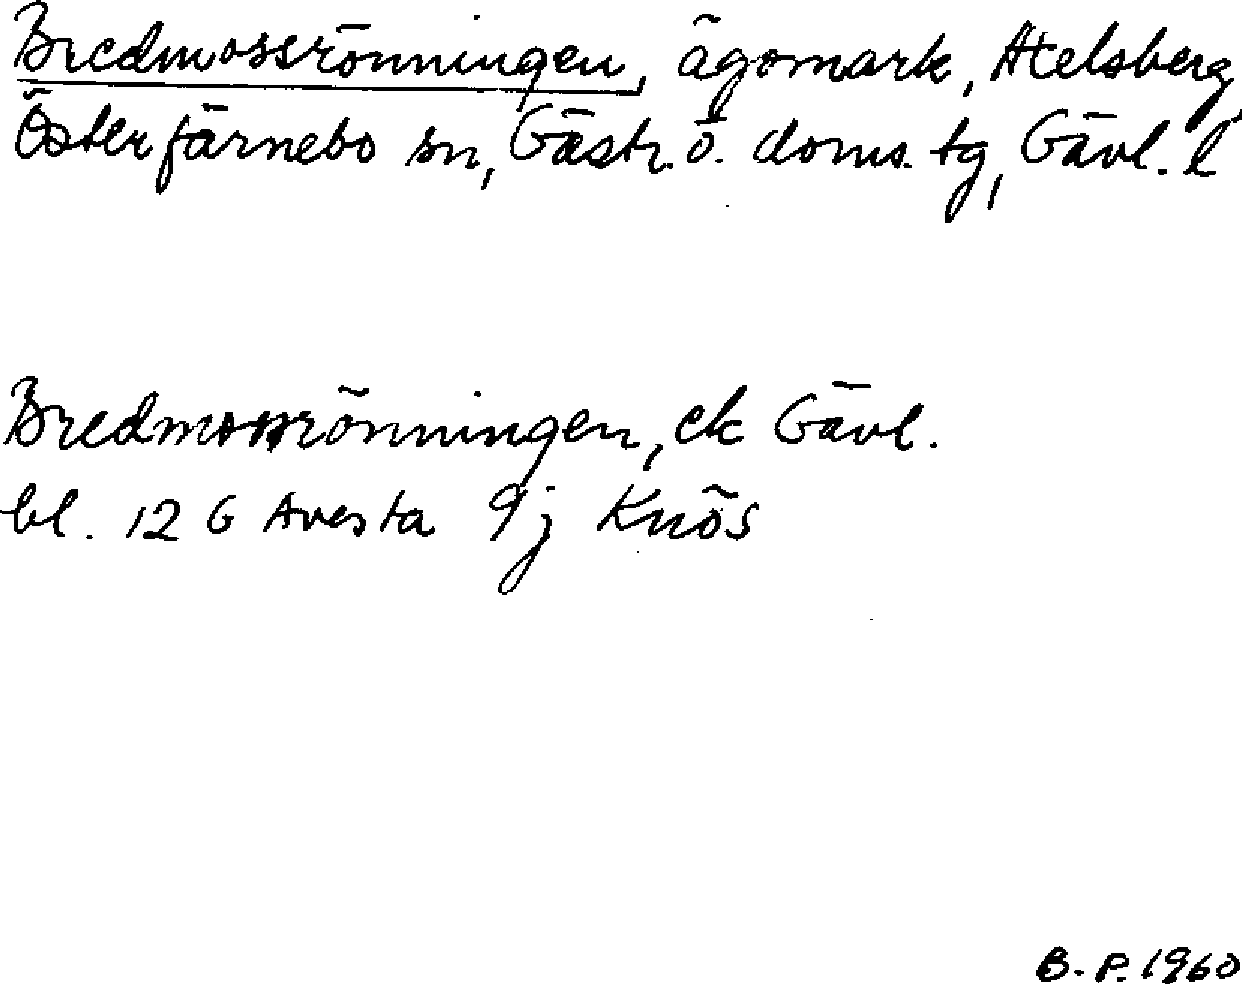 Bredmossrönningen, ägomark, Atelsberg,
Österfärnebo sn, Gästr. ö. doms. tg, Gävl. l
Bredmossrönningen, ek Gävl.
bl. 12 G Avesta 9j Knös
B. P. 1960